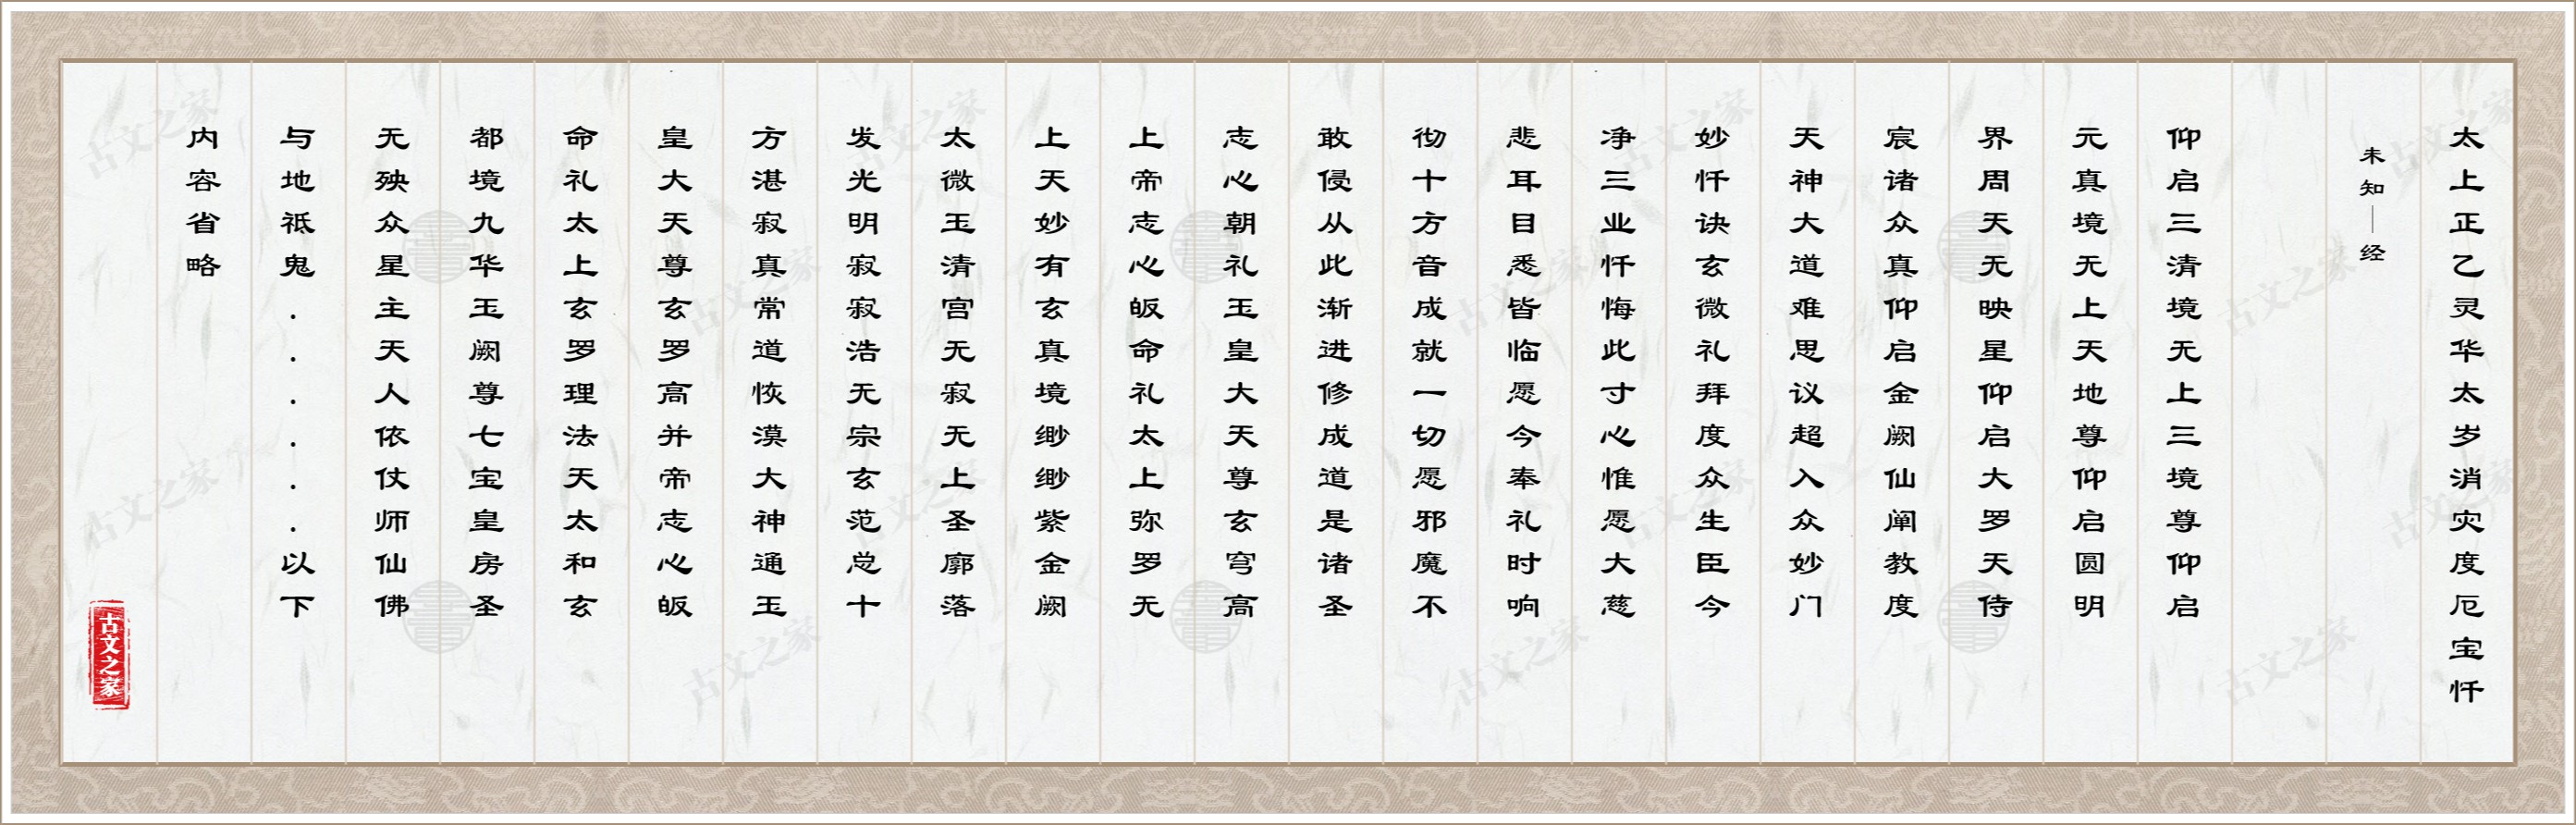 太上正乙灵华太岁消灾度厄宝忏
未知｜经
仰启三清境无上三境尊仰启
元真境无上天地尊仰启圆明
界周天无映星仰启大罗天侍
宸诸众真仰启金阙仙阐教度
天神大道难思议超入众妙门
妙忏诀玄微礼拜度众生臣今
净三业忏悔此寸心惟愿大慈
悲耳目悉皆临愿今奉礼时响
彻十方音成就一切愿邪魔不
敢侵从此渐进修成道是诸圣
志心朝礼玉皇大天尊玄穹高
上帝志心皈命礼太上弥罗无
上天妙有玄真境缈缈紫金阙
太微玉清宫无寂无上圣廓落
发光明寂寂浩无宗玄范总十
方湛寂真常道恢漠大神通玉
皇大天尊玄罗高并帝志心皈
命礼太上玄罗理法天太和玄
都境九华玉阙尊七宝皇房圣
无殃众星主天人依仗师仙佛
与地祗鬼......以下
内容省略
古文之家